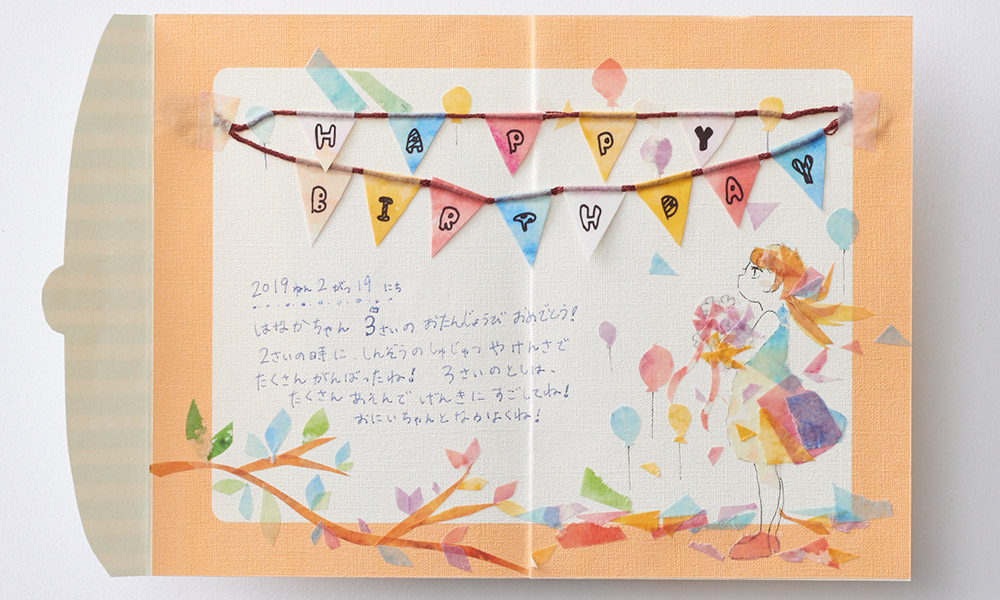 HAPPY
BIRTHDAY
2019ねん2がつ19にち
はなかちゃん 3さいの おたんじょうび おめでとう!
2さいの時に しんぞうのしゅじゅつ やけんさで
たくさん がんばったね! 3さいのとしは、
たくさん あそんで げんきに すごしてね!
おにいちゃんとなかよくね!